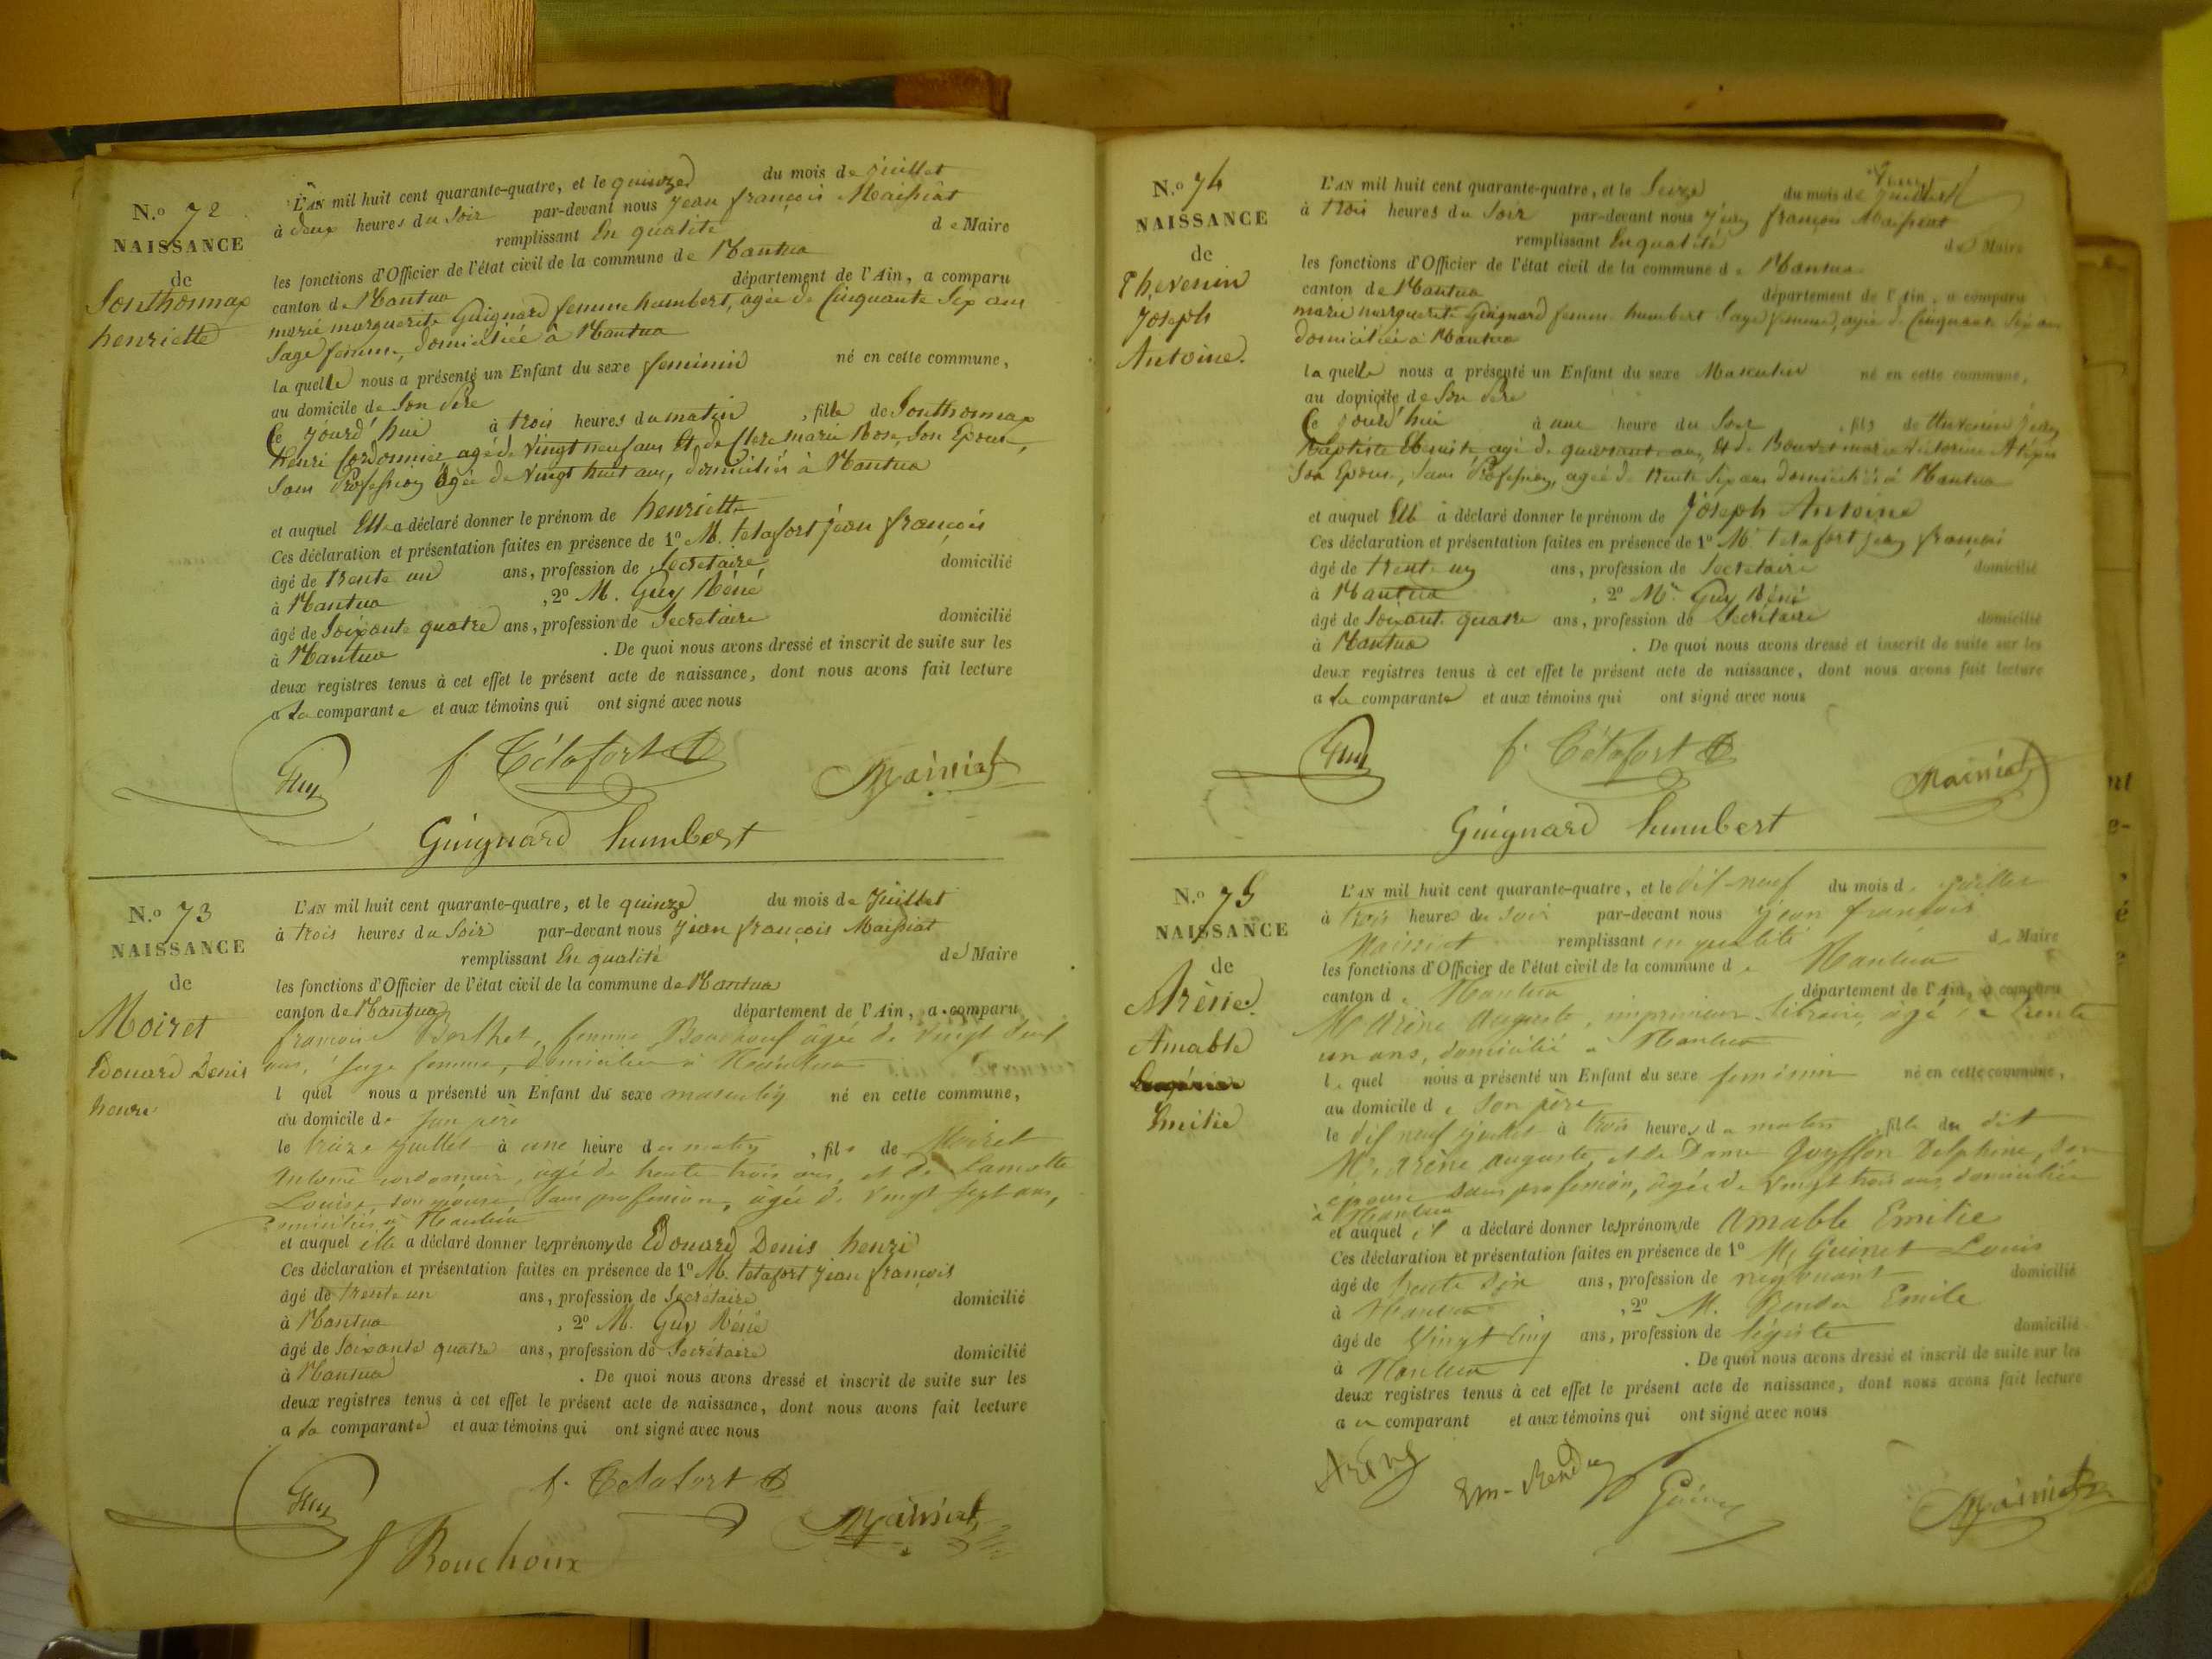 N.º 72
NAISSANCE
de
Sonthonnax
henriette
L'AN mil huit cent quarante-quatre, et le quinze du mois de juillet
à deux heures du Soir par-devant nous jean françois Maissiat
remplissant En qualité de Maire
les fonctions d'Officier de l'état civil de la commune de Nantua
canton de Nantua département de l'Ain, a comparu
marie marguerite Guignard femme humbert, agée de Cinquante Six ans
Sage femme, domiciliée à Nantua
la quelle nous a présenté un Enfant du sexe feminin né en cette commune,
au domicile de Son père
Ce jourd'hui à trois heures du matin, fille de Sonthonnax
henri Cordonnier agé de vingt neuf ans Et de Clerc marie Rose, Son Epouse,
Sans Profession âgée de vingt huit ans, domiciliés à Nantua
et auquel Elle a déclaré donner le prénom de henriette
Ces déclaration et présentation faites en présence de 1º M. tetafort jean françois
âgé de trente un ans, profession de Secretaire domicilié
à Nantua, 2º M. Guy Réné
âgé de Soixante quatre ans, profession de Secretaire domicilié
à Nantua. De quoi nous avons dressé et inscrit de suite sur les
deux registres tenus à cet effet le présent acte de naissance, dont nous avons fait lecture
a la comparante et aux témoins qui ont signé avec nous
Guy f. Tétafort Maissiat
Guignard humbert
N.º 73
NAISSANCE
de
Moiret
Edouard Denis
henri
L'AN mil huit cent quarante-quatre, et le quinze du mois de Juillet
à trois heures du Soir par-devant nous Jean françois Maissiat
remplissant En qualité de Maire
les fonctions d'Officier de l'état civil de la commune de Nantua
canton de Nantua département de l'Ain, a comparu
françoise Berthet, femme âgée de vingt
ans, Sage femme, domiciliée à Nantua
l quel nous a présenté un Enfant du sexe masculin né en cette commune,
au domicile de Son père
le treize juillet à une heure du matin, fils de Moiret
Antoine cordonnier, agé de trente trois ans, et de Lamotte
Louise son épouse, Sans profession, âgée de vingt Sept ans,
domiciliés à Nantua
et auquel elle a déclaré donner les prénoms de Edouard Denis henri
Ces déclaration et présentation faites en présence de 1º M. tetafort Jean françois
âgé de trente un ans, profession de Secrétaire domicilié
à Nantua, 2º M. Guy Réné
âgé de Soixante quatre ans, profession de Secrétaire domicilié
à Nantua. De quoi nous avons dressé et inscrit de suite sur les
deux registres tenus à cet effet le présent acte de naissance, dont nous avons fait lecture
a la comparante et aux témoins qui ont signé avec nous
Guy f. Tetafort Maissiat
f Bouchoux
N.º 74
NAISSANCE
de
Thevenin
Joseph
Antoine.
L'AN mil huit cent quarante-quatre, et le Seize du mois de Juillet
à trois heures du Soir par-devant nous Jean françois Maissiat
remplissant En qualité de Maire
les fonctions d'Officier de l'état civil de la commune de Nantua
canton de Nantua département de l'Ain, a comparu
marie marguerite Guignard femme humbert Sage femme, agée de Cinquante Six ans
domiciliée à Nantua
la quelle nous a présenté un Enfant du sexe Masculin né en cette commune,
au domicile de Son père
Ce jourd'hui à une heure du Soir, fils de thevenin Jean
Baptiste Ebéniste agé de quarante ans, Et de Bouvet marie victorine
Son Epouse, Sans Profession, agée de trente Six ans domiciliés à Nantua
et auquel Elle a déclaré donner le prénom de Joseph Antoine
Ces déclaration et présentation faites en présence de 1º M. tetafort jean françois
âgé de trente un ans, profession de Secretaire domicilié
à Nantua, 2º Mr. Guy Réné
âgé de Soixante quatre ans, profession de Secrétaire domicilié
à Nantua. De quoi nous avons dressé et inscrit de suite sur les
deux registres tenus à cet effet le présent acte de naissance, dont nous avons fait lecture
a la comparante et aux témoins qui ont signé avec nous
Guy f. Tétafort Maissiat
Guignard humbert
N.º 75
NAISSANCE
de
Arène.
Amable
Emilie
L'AN mil huit cent quarante-quatre, et le dix neuf du mois de juillet
à trois heures du soir par-devant nous jean françois
Maissiat remplissant en qualité de Maire
les fonctions d'Officier de l'état civil de la commune de Nantua
canton de Nantua département de l'Ain, a comparu
Mr Arène Auguste, imprimeur libraire, agé de trente
un ans, domicilié à Nantua
le quel nous a présenté un Enfant du sexe feminin né en cette commune,
au domicile de Son père
le dix neuf juillet à trois heures du matin, fille du dit
Mr. Arène Auguste, et de Dame Goyffon Delphine, son
épouse sans profession, âgée de vingt trois ans, domiciliés
à Nantua
et auquel il a déclaré donner les prénoms de Amable Emilie
Ces déclaration et présentation faites en présence de 1º Mr Guinet Louis
âgé de trente six ans, profession de négociant domicilié
à Nantua, 2º M. Rendu Emile
âgé de vingt cinq ans, profession de légiste domicilié
à Nantua. De quoi nous avons dressé et inscrit de suite sur les
deux registres tenus à cet effet le présent acte de naissance, dont nous avons fait lecture
a u comparant et aux témoins qui ont signé avec nous
Arène Em. Rendu Guinet Maissiat